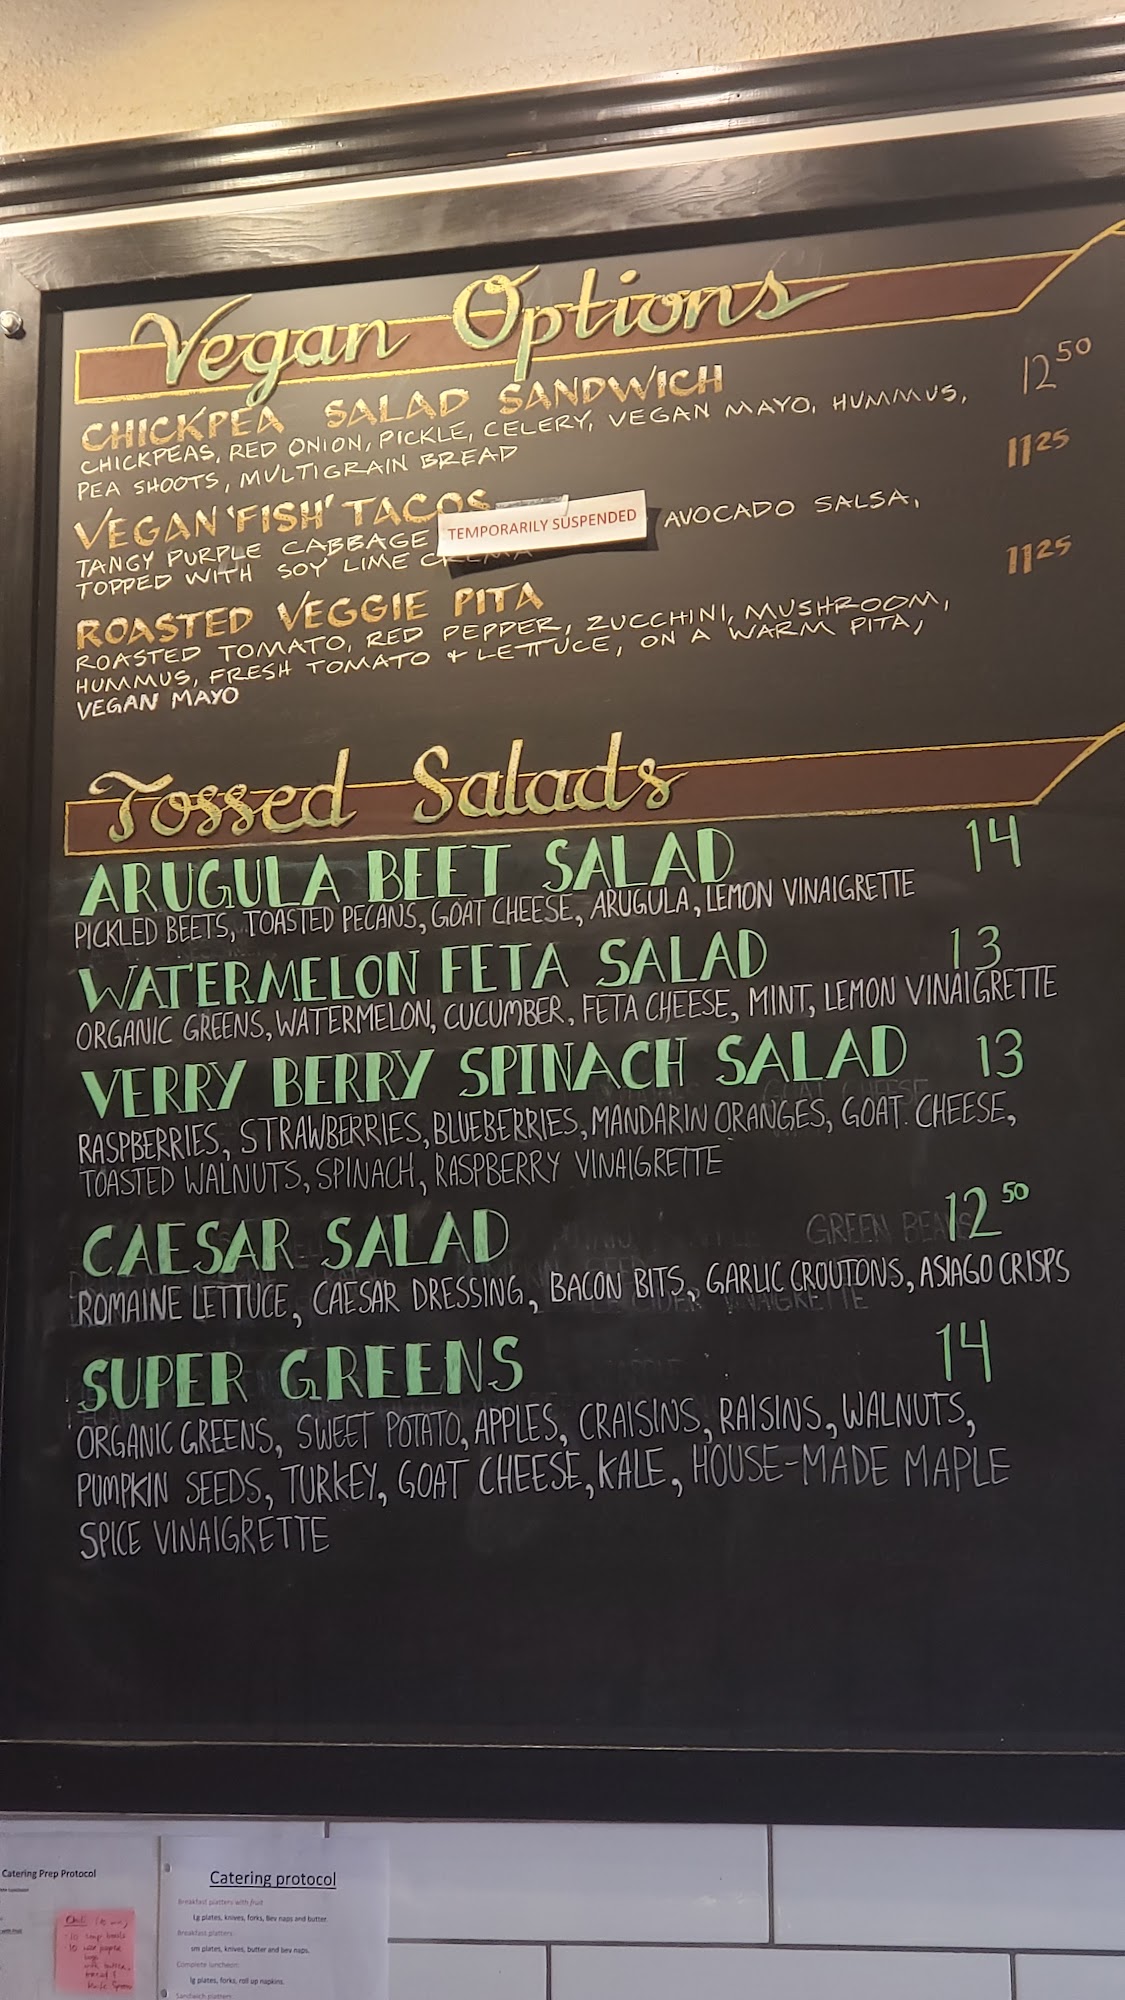 Vegan Options
CHICKPEA SALAD SANDWICH 12 50
CHICKPEAS, RED ONION, PICKLE, CELERY, VEGAN MAYO, HUMMUS,
PEA SHOOTS, MULTIGRAIN BREAD
VEGAN 'FISH' TACOS 11 25
TEMPORARILY SUSPENDED
TANGY PURPLE CABBAGE AVOCADO SALSA,
TOPPED WITH SOY LIME CREMA
ROASTED VEGGIE PITA 11 25
ROASTED TOMATO, RED PEPPER, ZUCCHINI, MUSHROOM,
HUMMUS, FRESH TOMATO & LETTUCE, ON A WARM PITA,
VEGAN MAYO
Tossed Salads
ARUGULA BEET SALAD 14
PICKLED BEETS, TOASTED PECANS, GOAT CHEESE, ARUGULA, LEMON VINAIGRETTE
WATERMELON FETA SALAD 13
ORGANIC GREENS, WATERMELON, CUCUMBER, FETA CHEESE, MINT, LEMON VINAIGRETTE
VERRY BERRY SPINACH SALAD 13
RASPBERRIES, STRAWBERRIES, BLUEBERRIES, MANDARIN ORANGES, GOAT CHEESE,
TOASTED WALNUTS, SPINACH, RASPBERRY VINAIGRETTE
CAESAR SALAD 12 50
ROMAINE LETTUCE, CAESAR DRESSING, BACON BITS, GARLIC CROUTONS, ASIAGO CRISPS
SUPER GREENS 14
ORGANIC GREENS, SWEET POTATO, APPLES, CRAISINS, RAISINS, WALNUTS,
PUMPKIN SEEDS, TURKEY, GOAT CHEESE, KALE, HOUSE-MADE MAPLE
SPICE VINAIGRETTE
Catering Prep Protocol
Catering protocol
Breakfast platters with fruit
Lg plates, knives, forks, Bev naps and butter.
Breakfast platters
sm plates, knives, butter and bev naps.
Complete luncheon:
lg plates, forks, roll up napkins.
Sandwich platters